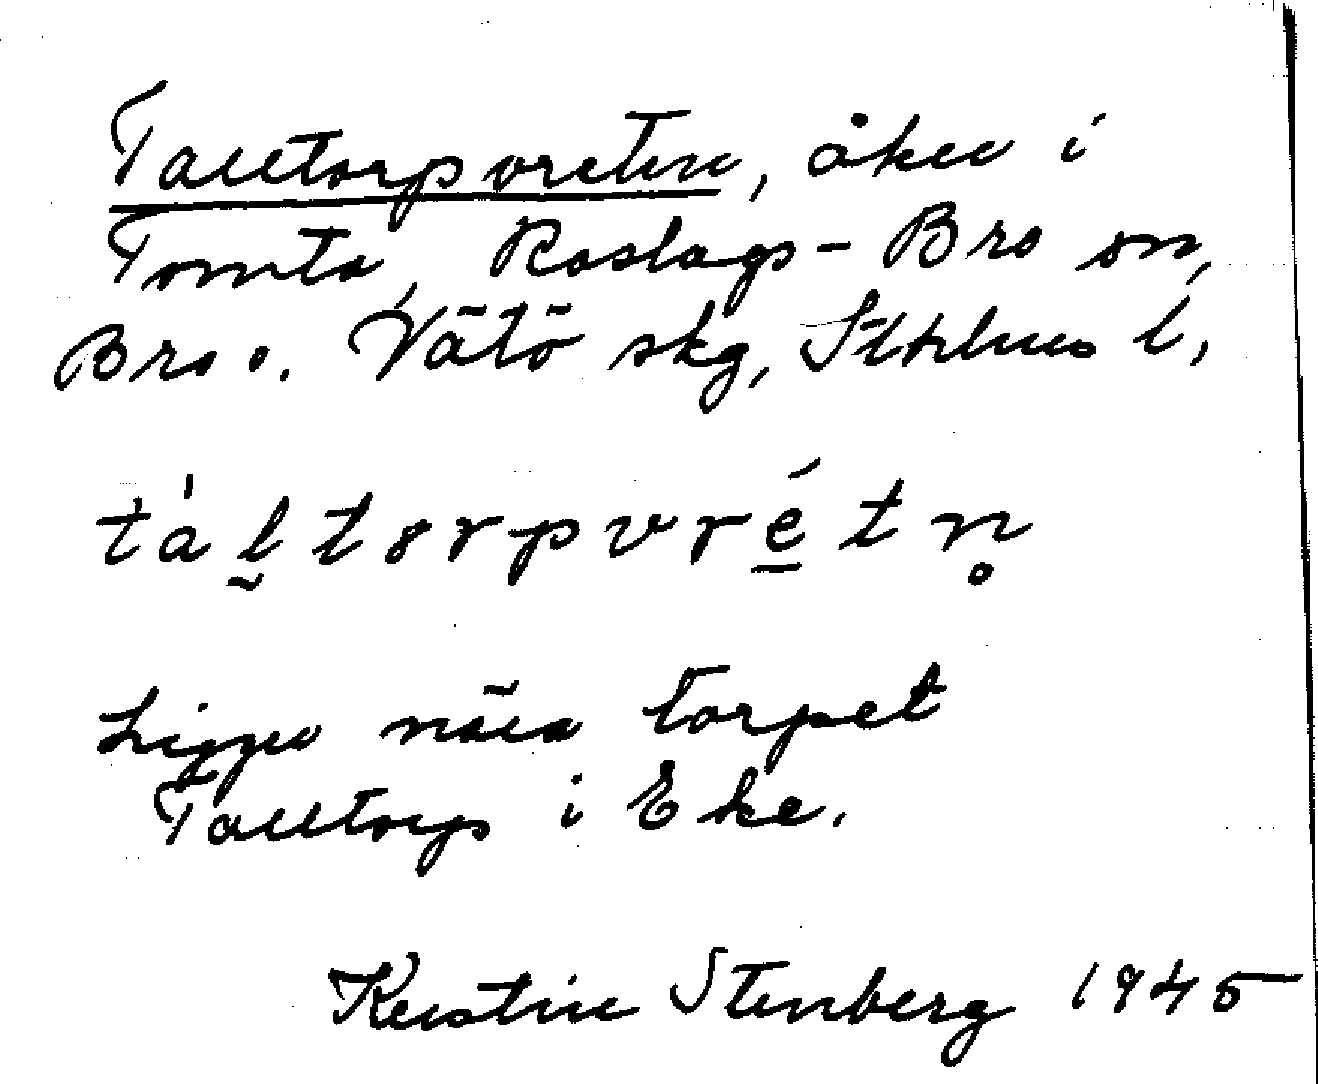 Talltorpvreten, åker i
Tomta, Roslags-Bro sn,
Bro o. Vätö skg, Sthlms l,
tàl̰torpvrét̲n̥
Ligger nära torpet
Talltorp i Eke.
Kerstin Stenberg 1945